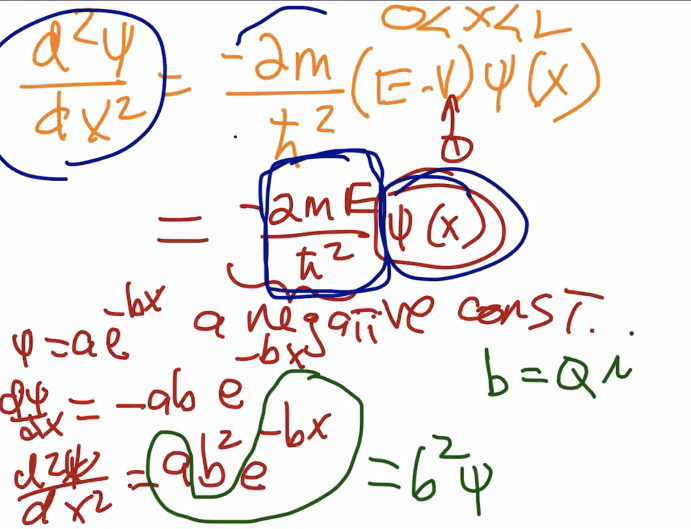 0<x<L
d²ψ/dx² = -2m/ħ² (E-V) ψ(x)
0
= -2mE/ħ² ψ(x)
a negative const.
ψ = a e^-bx
dψ/dx = -ab e^-bx
b = Qi
d²ψ/dx² = ab² e^-bx = b²ψ